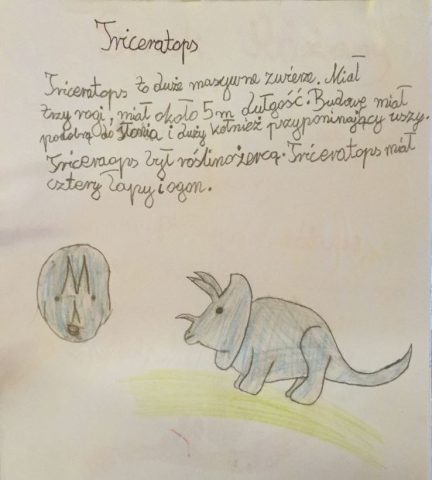 Triceratops
Triceratops to duże masywne zwierze. Miał
trzy rogi, miał około 5 m dułgość. Budowę miał
podobną do słonia i duży kołnież przyponinający uszy.
Triceraops był roślinożercą. Triceratops miał
cztery łapy i ogon.